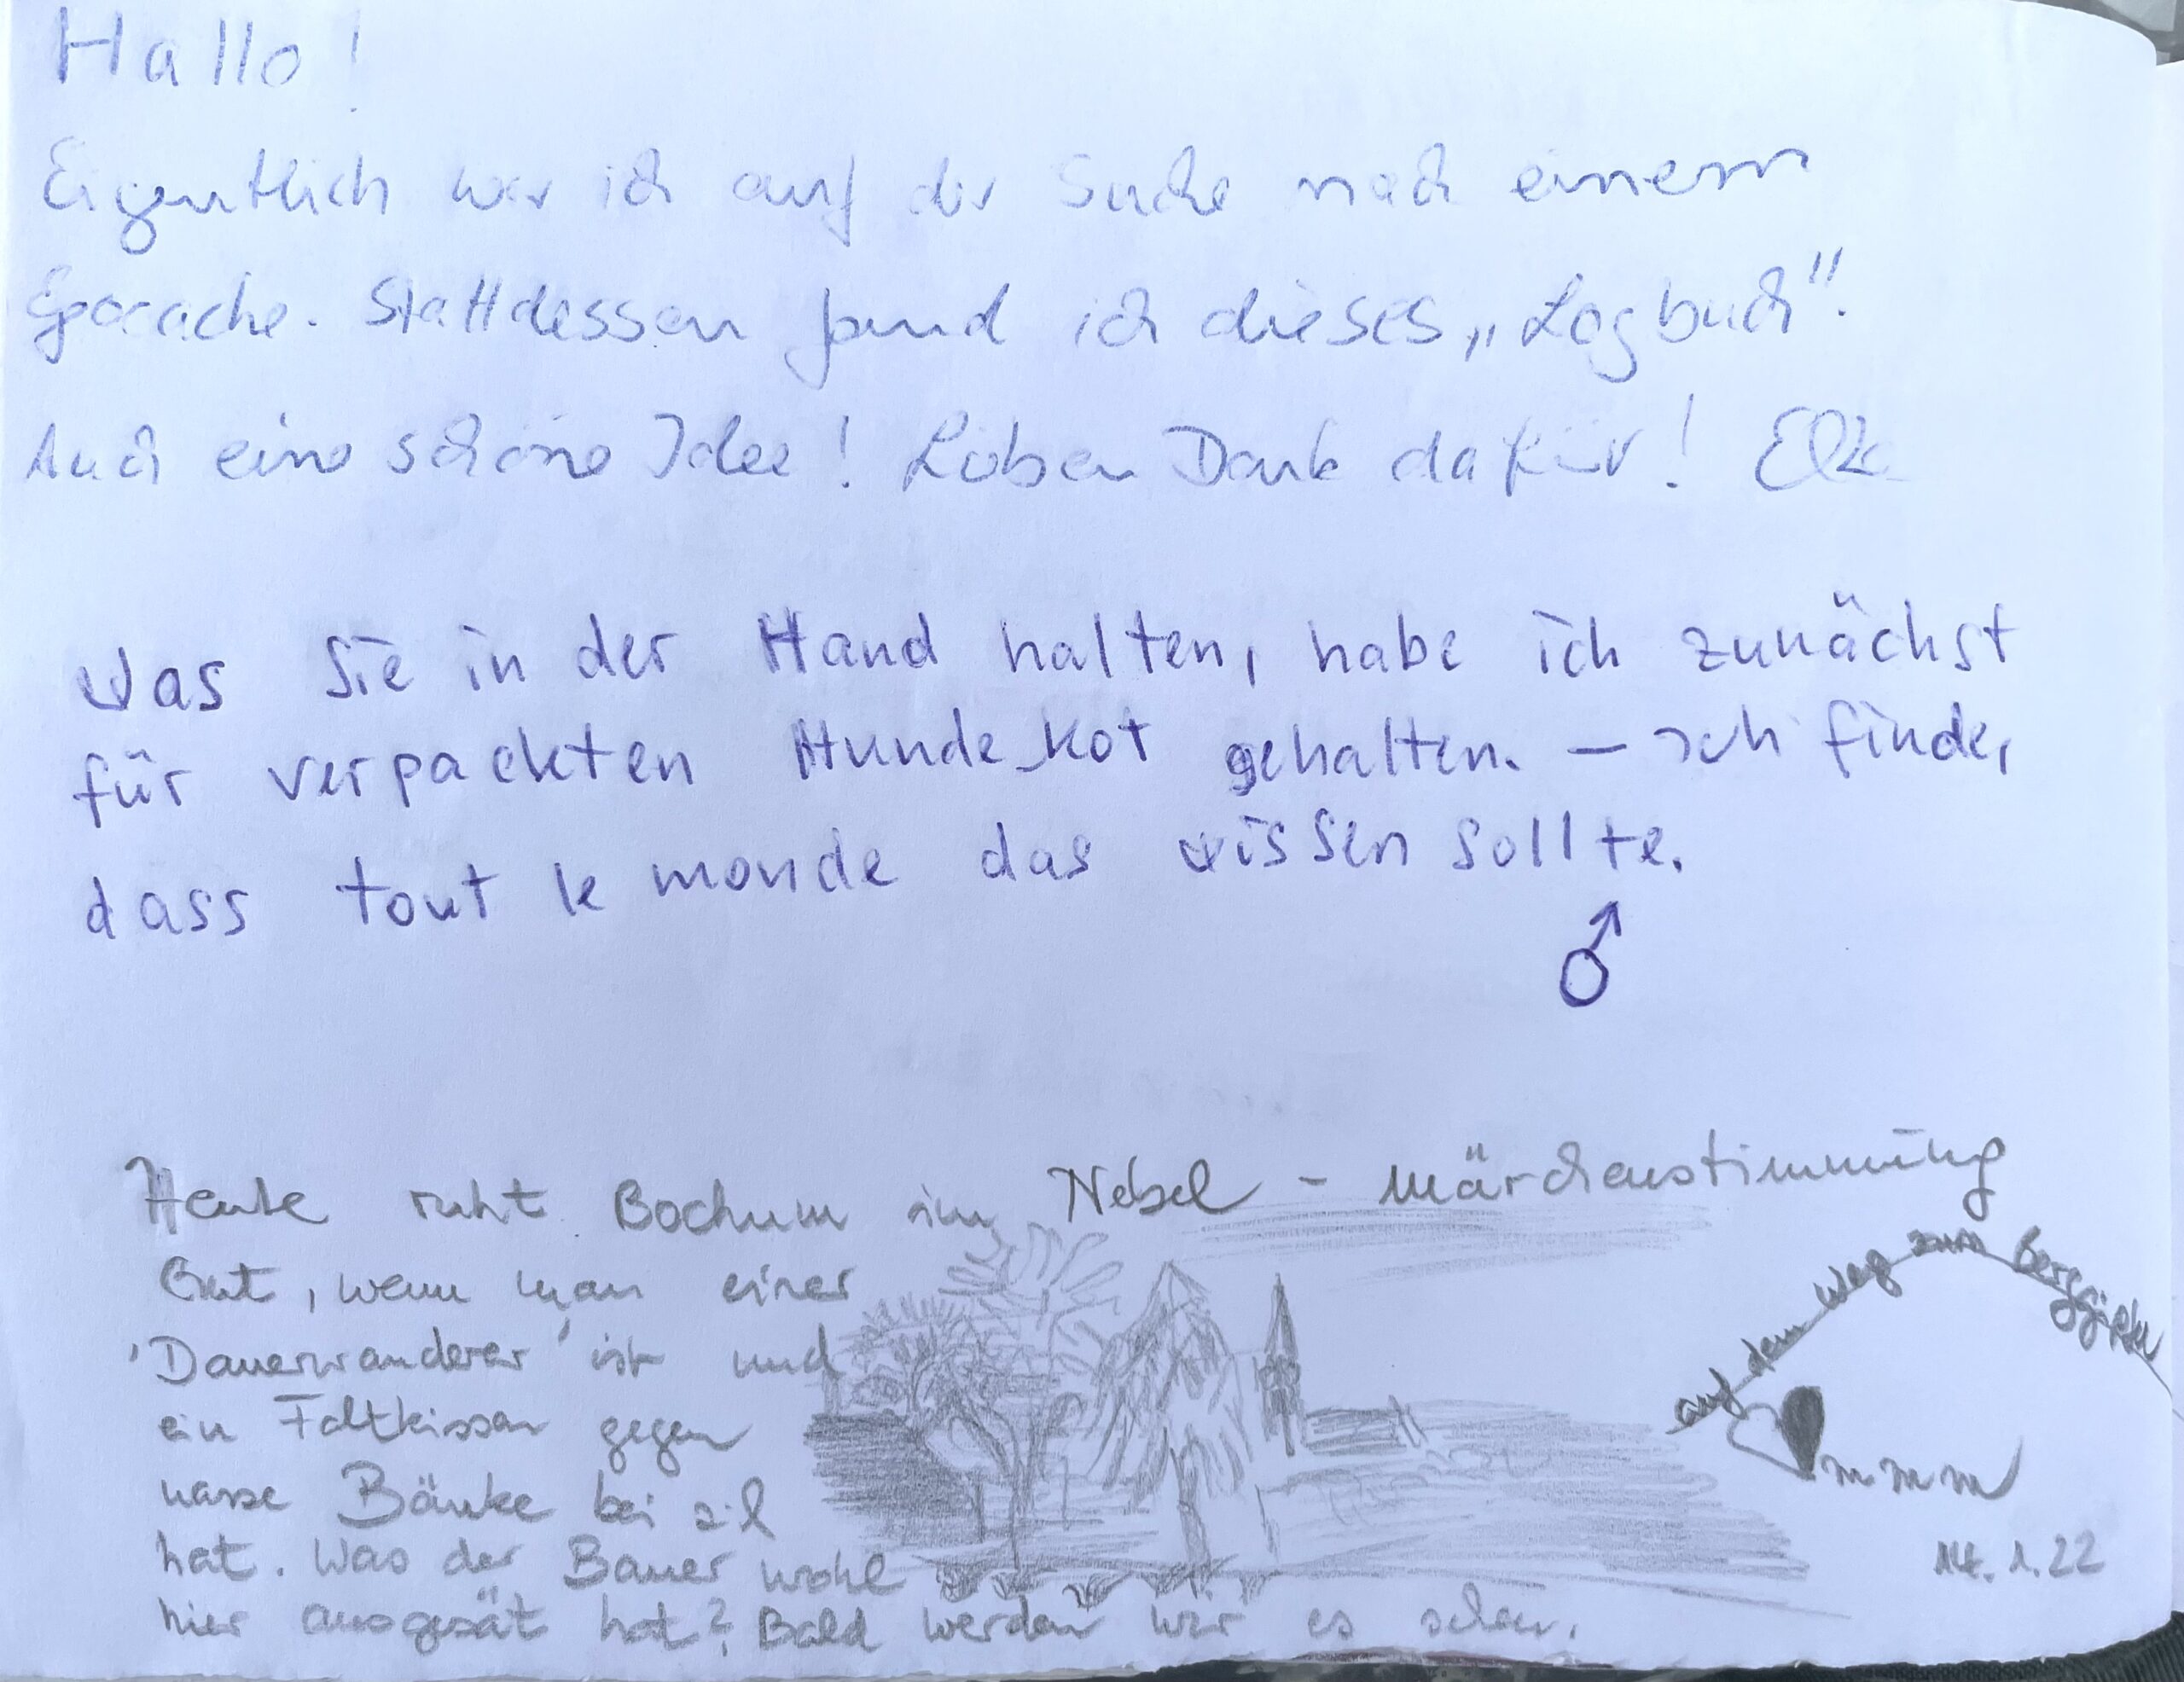 Hallo!
Eigentlich war ich auf der Suche nach einem
Geocache. Stattdessen fand ich dieses „Logbuch".
Auch eine schöne Idee! Lieben Dank dafür!
Was Sie in der Hand halten, habe ich zunächst
für verpackten Hunde_kot gehalten. – Ich finde,
dass tout le monde das wissen sollte.
♂
Heute ruht Bochum im Nebel – Märchenstimmung
Gut, wenn man einer
'Dauerwanderer' ist und
ein Faltkissen gegen
nasse Bänke bei
hat. Was der Bauer wohl
hier ausgesät hat? Bald werden wir es sehen.
auf dem weg zum berggipfel
mmm
14.1.22